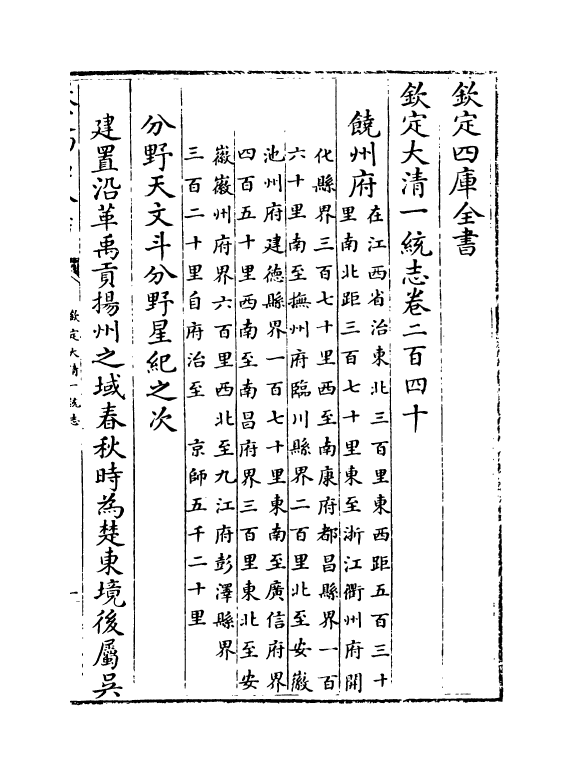 欽定四庫全書
欽定大清一統志卷二百四十
饒州府
在江西省治東北三百里東西距五百三十
里南北距三百七十里東至浙江衢州府開
化縣界三百七十里西至南康府都昌縣界一百
六十里南至撫州府臨川縣界二百里北至安徽
池州府建德縣界一百七十里東南至廣信府界
四百五十里西南至南昌府界三百里東北至安
徽徽州府界六百里西北至九江府彭澤縣界
三百二十里自府治至 京師五千二十里
分野天文斗分野星紀之次
建置沿革禹貢揚州之域春秋時為楚東境後屬吳
欽定大清一統志
一